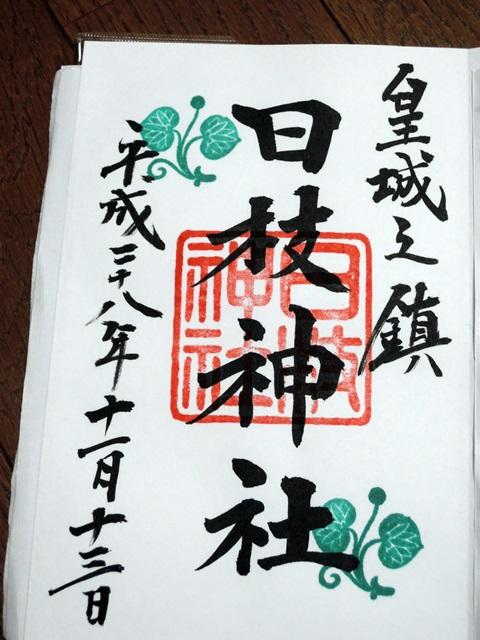 皇城之鎮
日枝神社
日枝神社
平成二十八年十一月十三日